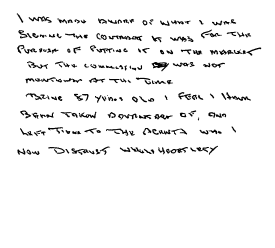 I was made aware of what I was
signing the contract it was for the
purpose of putting it on the market
But the commission was not
mentioned at the time
Being 87 years old I feel I have
been taken advantage of, and
left tied to the agents who I
now distrust wholeheartley